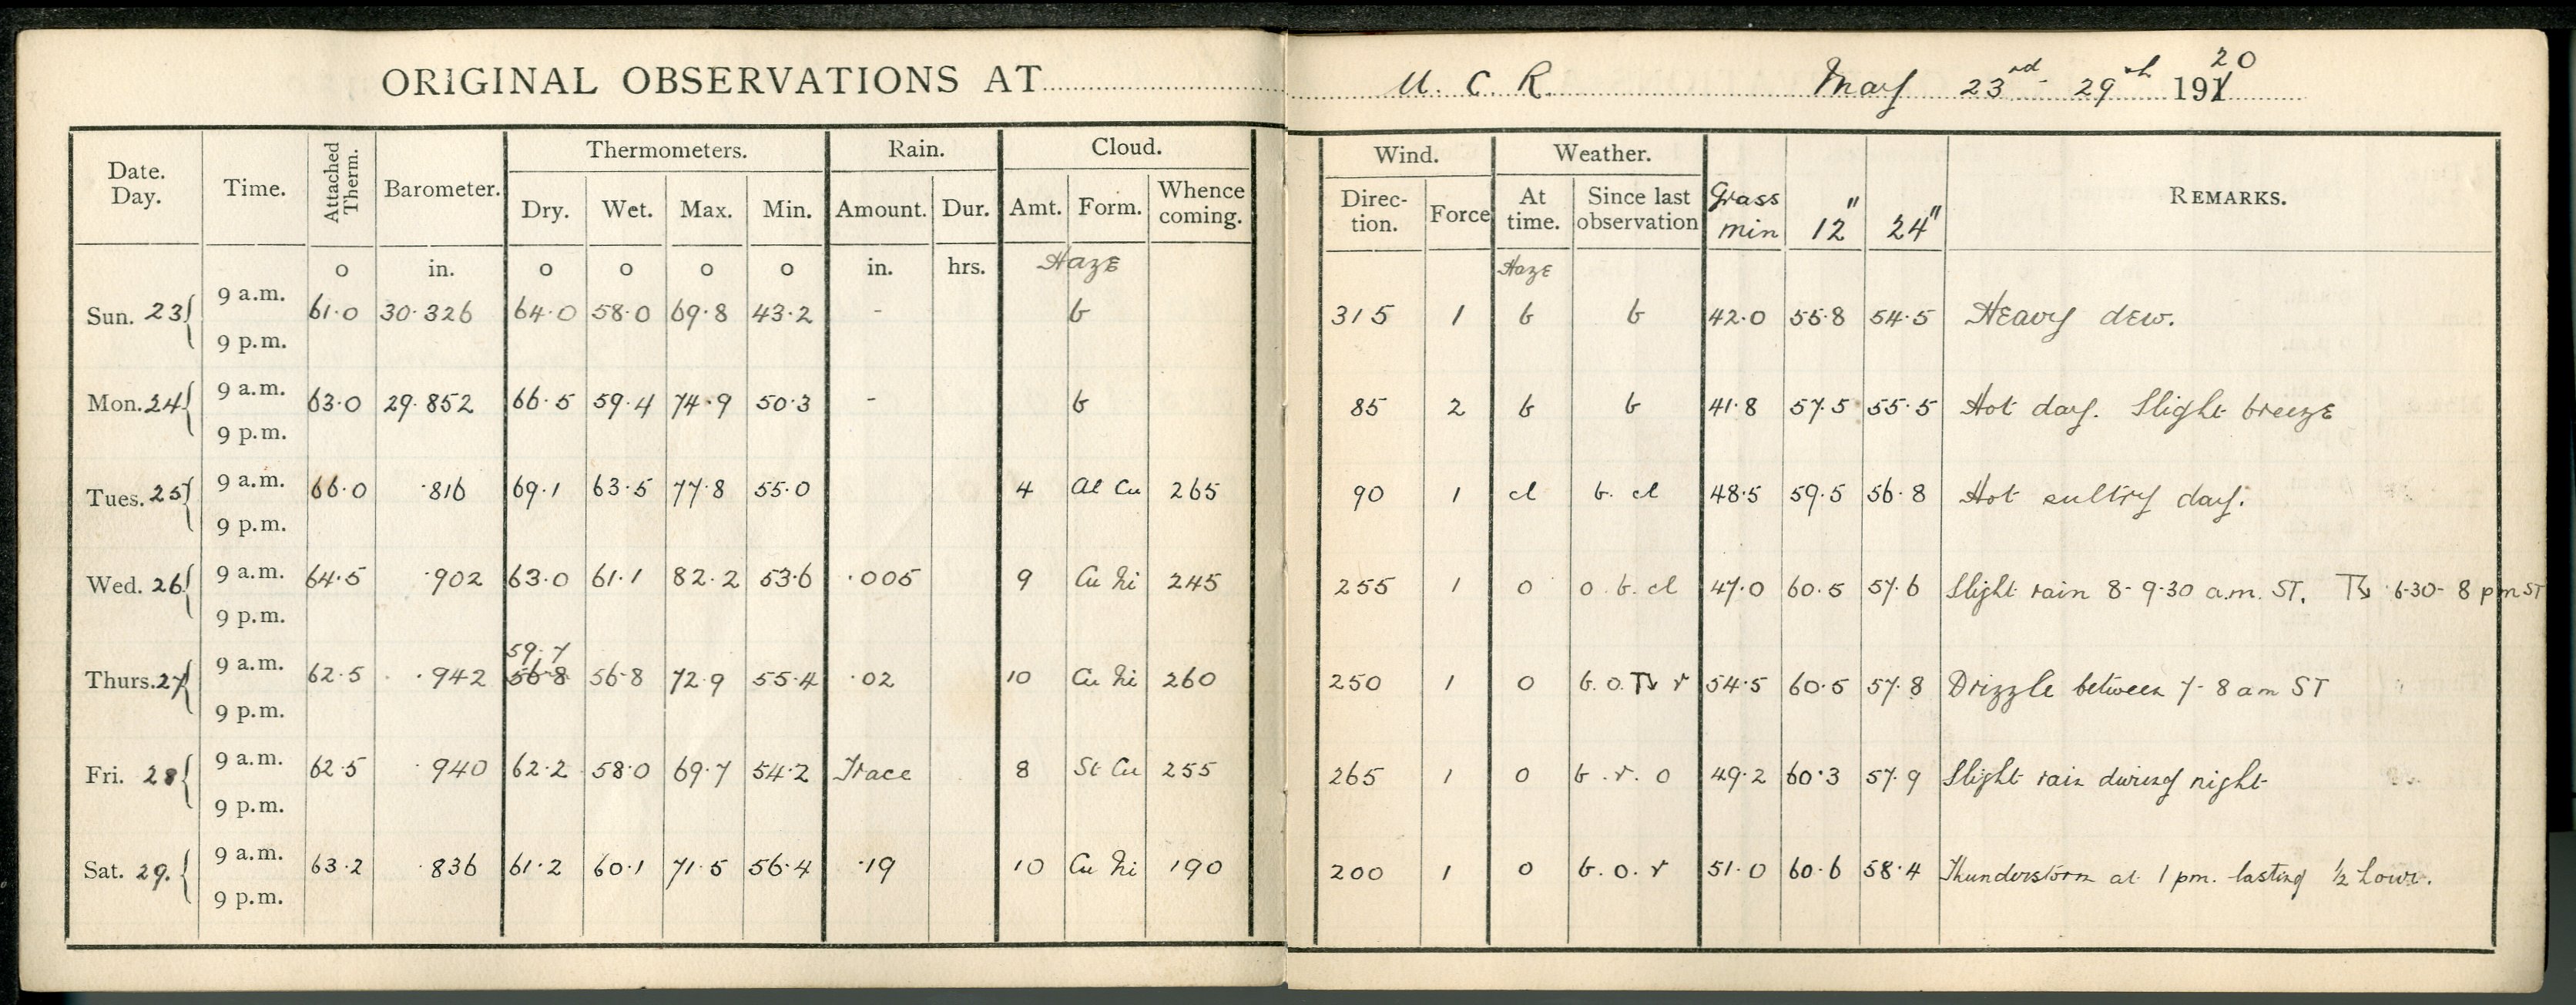 ORIGINAL OBSERVATIONS AT U. C. R. May 23rd - 29th 1920
Date. Day. Time. Attached Therm. Barometer. Thermometers. Rain. Cloud. Wind. Weather. Grass min 12" 24" REMARKS.
Dry. Wet. Max. Min. Amount. Dur. Amt. Form. Whence coming. Direc- tion. Force At time. Since last observation
o in. o o o o in. hrs. Haze Haze
Sun. 23 9 a.m. 61.0 30.326 64.0 58.0 69.8 43.2 - b 315 1 b b 42.0 55.8 54.5 Heavy dew.
9 p.m.
Mon. 24 9 a.m. 63.0 29.852 66.5 59.4 74.9 50.3 - b 85 2 b b 41.8 57.5 55.5 Hot day. Slight breeze
9 p.m.
Tues. 25 9 a.m. 66.0 .816 69.1 63.5 77.8 55.0 4 Al Cu 265 90 1 cl b. cl 48.5 59.5 56.8 Hot sultry day.
9 p.m.
Wed. 26 9 a.m. 64.5 .902 63.0 61.1 82.2 53.6 .005 9 Cu Ni 245 255 1 o o. b. cl 47.0 60.5 57.6 Slight rain 8-9-30 a.m. ST. T 6-30- 8 pm ST
9 p.m.
59.7
Thurs. 27 9 a.m. 62.5 .942 56.8 56.8 72.9 55.4 .02 10 Cu Ni 260 250 1 o b. o. T r 54.5 60.5 57.8 Drizzle between 7- 8 am ST
9 p.m.
Fri. 28 9 a.m. 62.5 .940 62.2 58.0 69.7 54.2 Trace 8 St Cu 255 265 1 o b. r. o 49.2 60.3 57.9 Slight rain during night
9 p.m.
Sat. 29. 9 a.m. 63.2 .836 61.2 60.1 71.5 56.4 .19 10 Cu Ni 190 200 1 o b. o. r 51.0 60.6 58.4 Thunderstorm at 1 pm. lasting ½ hour.
9 p.m.